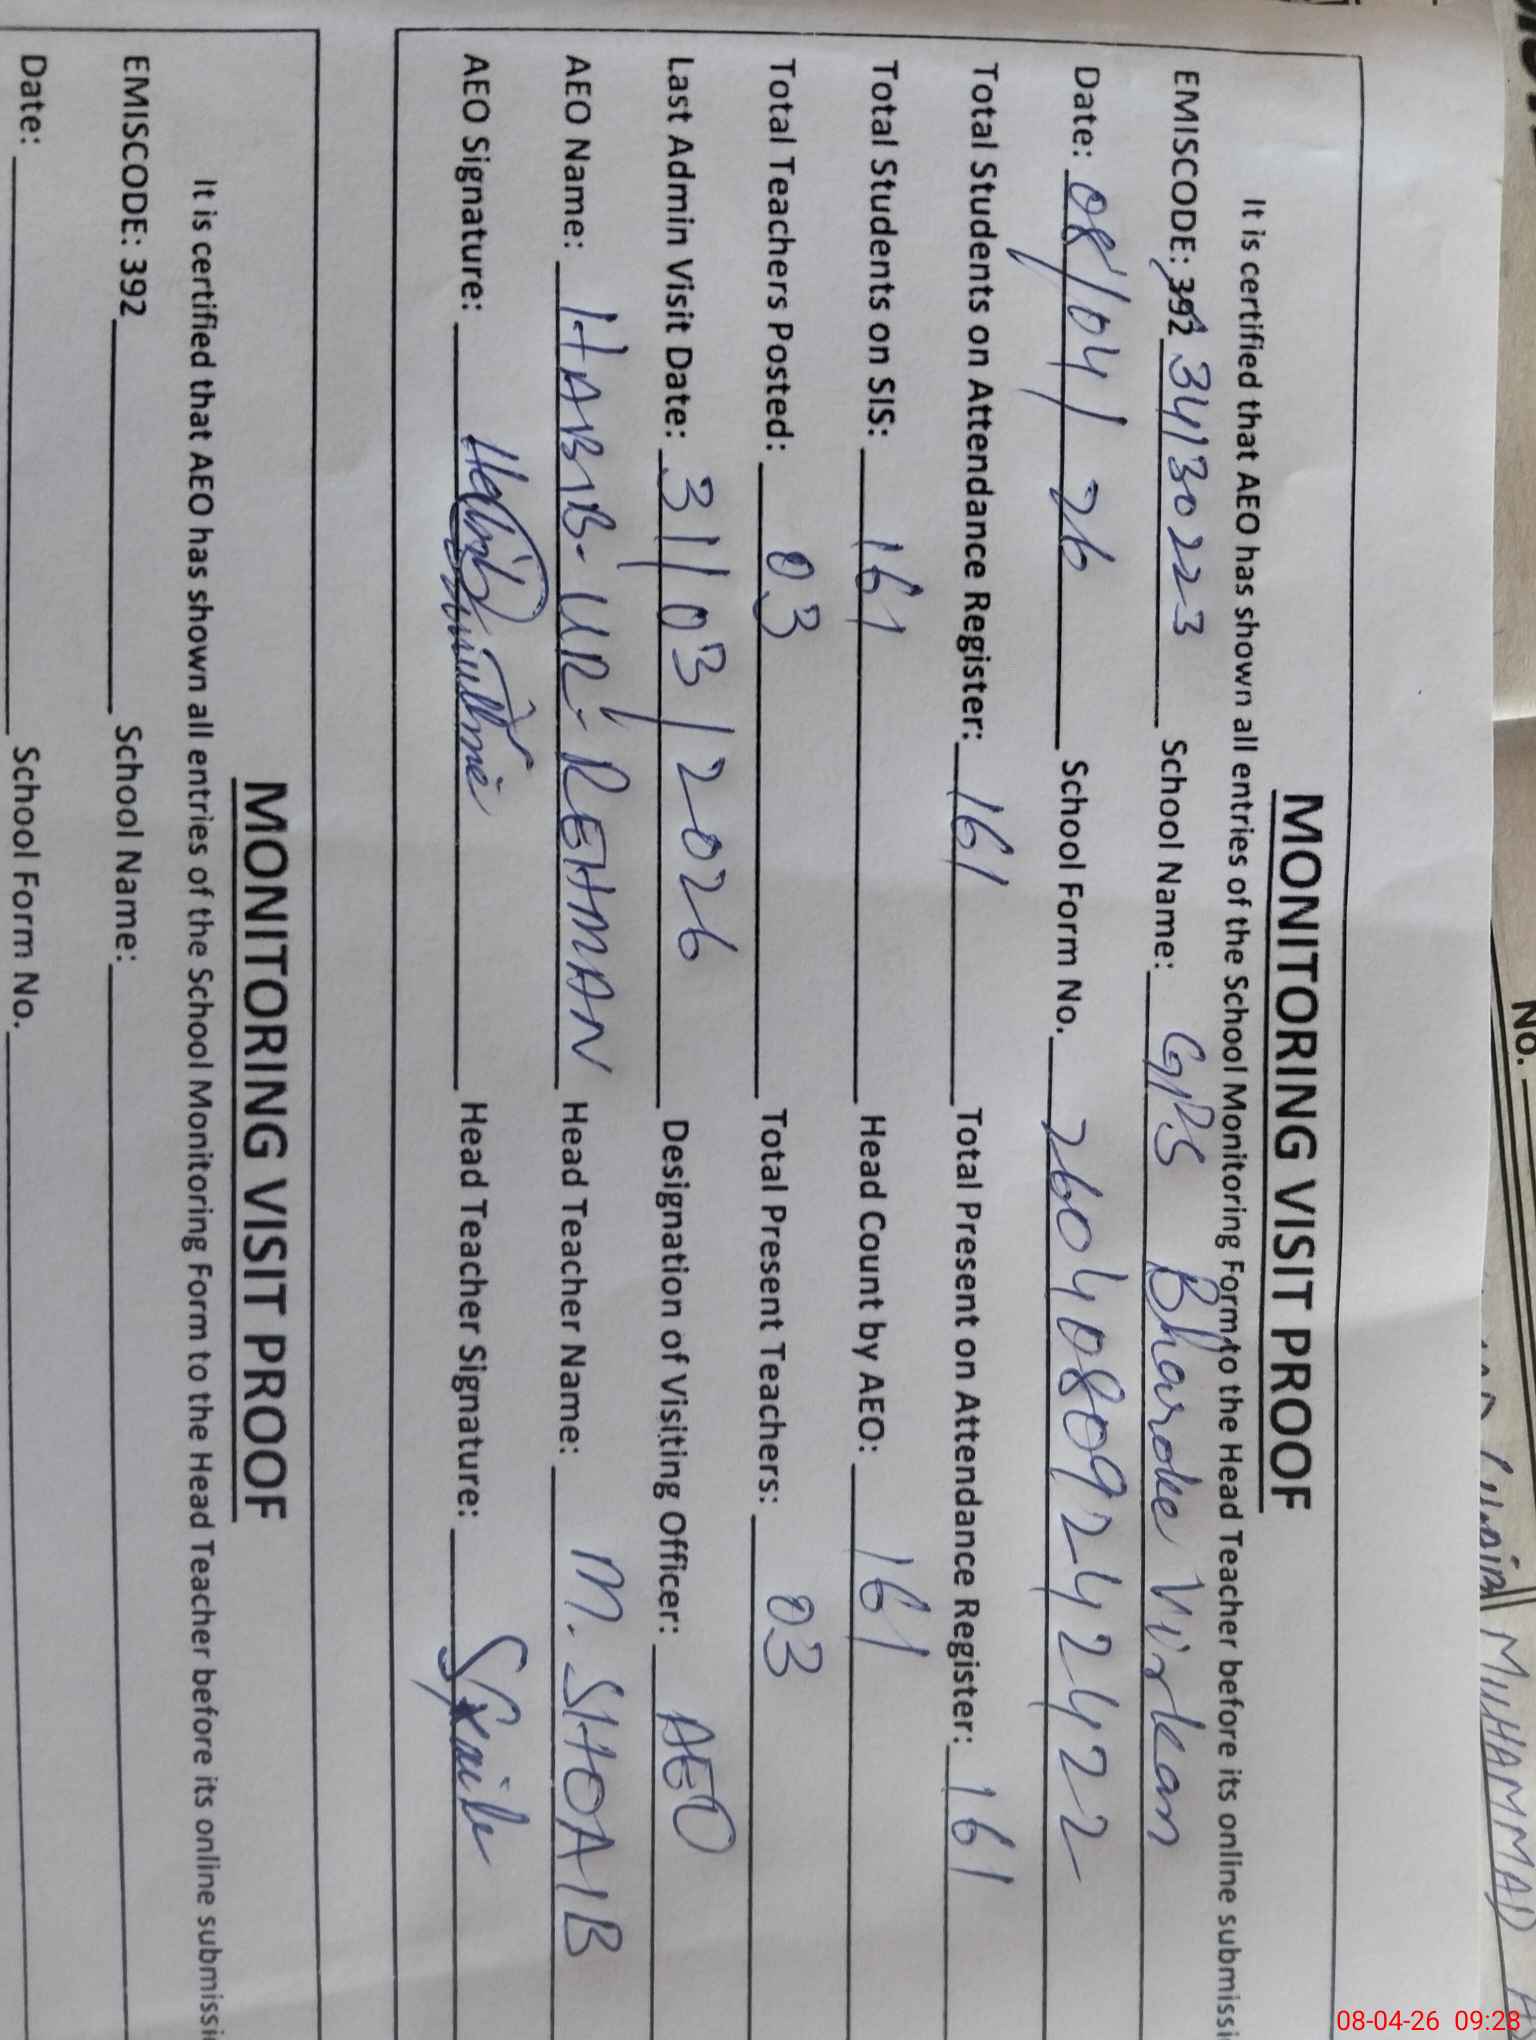 No.
MUHAMMAD
MONITORING VISIT PROOF
It is certified that AEO has shown all entries of the School Monitoring Form to the Head Teacher before its online submissi
EMISCODE: 392 34130223 School Name: GPS Bharoke Virkan
Date: 08/04/26 School Form No. 26040809242422
Total Students on Attendance Register: 161 Total Present on Attendance Register: 161
Total Students on SIS: 161 Head Count by AEO: 161
Total Teachers Posted: 03 Total Present Teachers: 03
Last Admin Visit Date: 31/03/2026 Designation of Visiting Officer: AEO
AEO Name: HABIB-UR-REHMAN Head Teacher Name: M. SHOAIB
AEO Signature: Head Teacher Signature:
MONITORING VISIT PROOF
It is certified that AEO has shown all entries of the School Monitoring Form to the Head Teacher before its online submissi
EMISCODE: 392 School Name:
Date: School Form No.
08-04-26 09:28